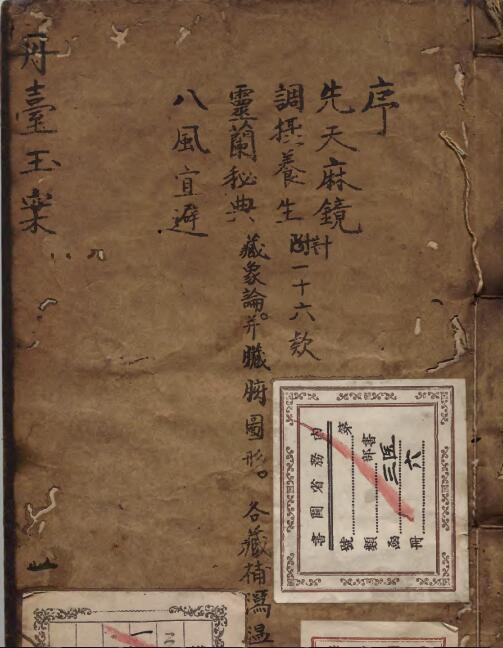 序
先天麻鏡
調摂養生 附計一十六欵
靈蘭秘典 藏象論。并臟腑圖形。各藏補瀉温
八風宜避
丹臺玉案
內務省圖書
第 號
書部 類
医三 函
六 冊
二
一